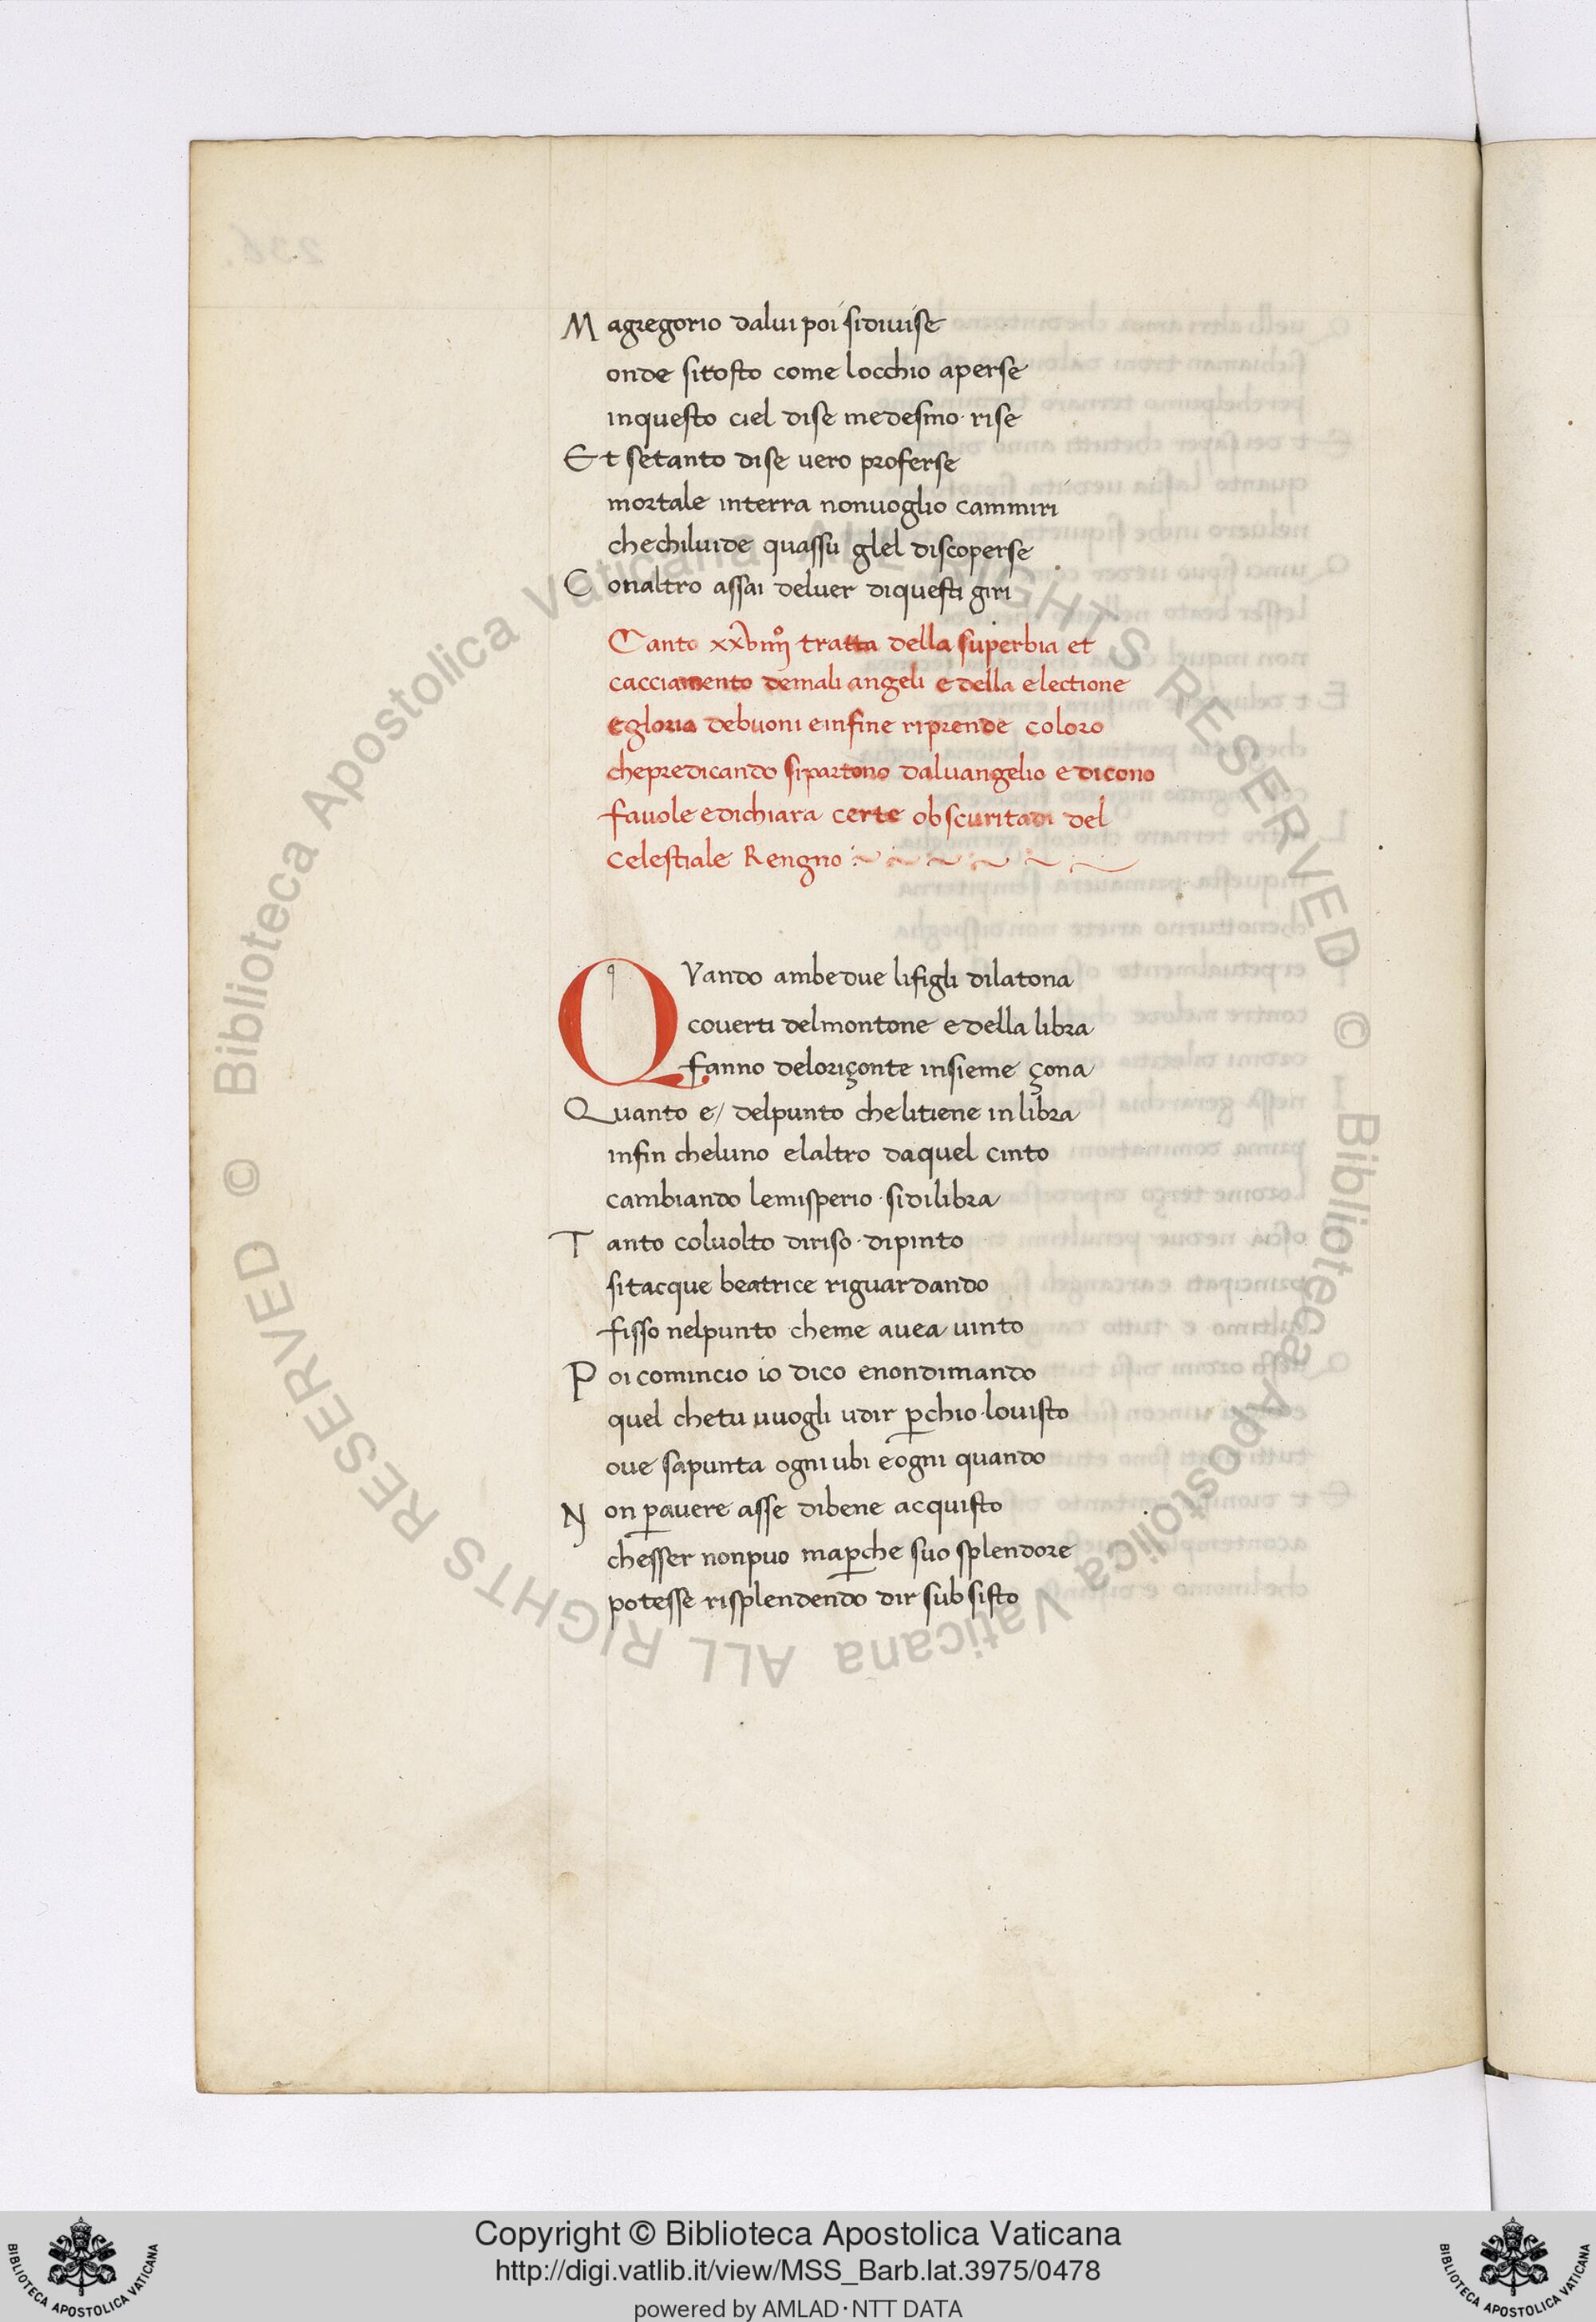 M agregorio dalui poi sidiuise
onde sitosto come locchio aperse
inquesto ciel dise medesmo · rise
Et setanto dise uero proferse
mortale interra nonuoglio cammiri
chechiluide quassu glel discoperse
C onaltro assai deluer diquesti giri
Canto xxviiijº tratta della superbia et
cacciamento demali angeli e della electione
egloria debuoni einfine riprende coloro
chepredicando sipartono daluangelio e dicono
fauole edichiara certe obscuritadi del
celestiale Rengno
QVando ambedue lifigli dilatona
couerti delmontone e della libra
fanno deloriçonte insieme çona
Quanto e/ delpunto chelitiene in libra
infin cheluno elaltro daquel cinto
cambiando lemisperio · sidilibra
T anto coluolto diriso · dipinto
sitacque beatrice riguardando
fisso nelpunto cheme auea uinto
P oi comincio io dico enondimando
quel chetu uuogli udir p̱chio · louisto
oue sapunta ogni ubi eogni quando
N on p̱auere asse dibene acquisto
chesser nonpuo map̱che suo splendore
potesse risplendendo dir subsisto
© Biblioteca Apostolica Vaticana ALL RIGHTS RESERVED © Biblioteca Apostolica Vaticana ALL RIGHTS RESERVED
Copyright © Biblioteca Apostolica Vaticana
http://digi.vatlib.it/view/MSS_Barb.lat.3975/0478
powered by AMLAD·NTT DATA
BIBLIOTECA APOSTOLICA VATICANA
BIBLIOTECA APOSTOLICA VATICANA